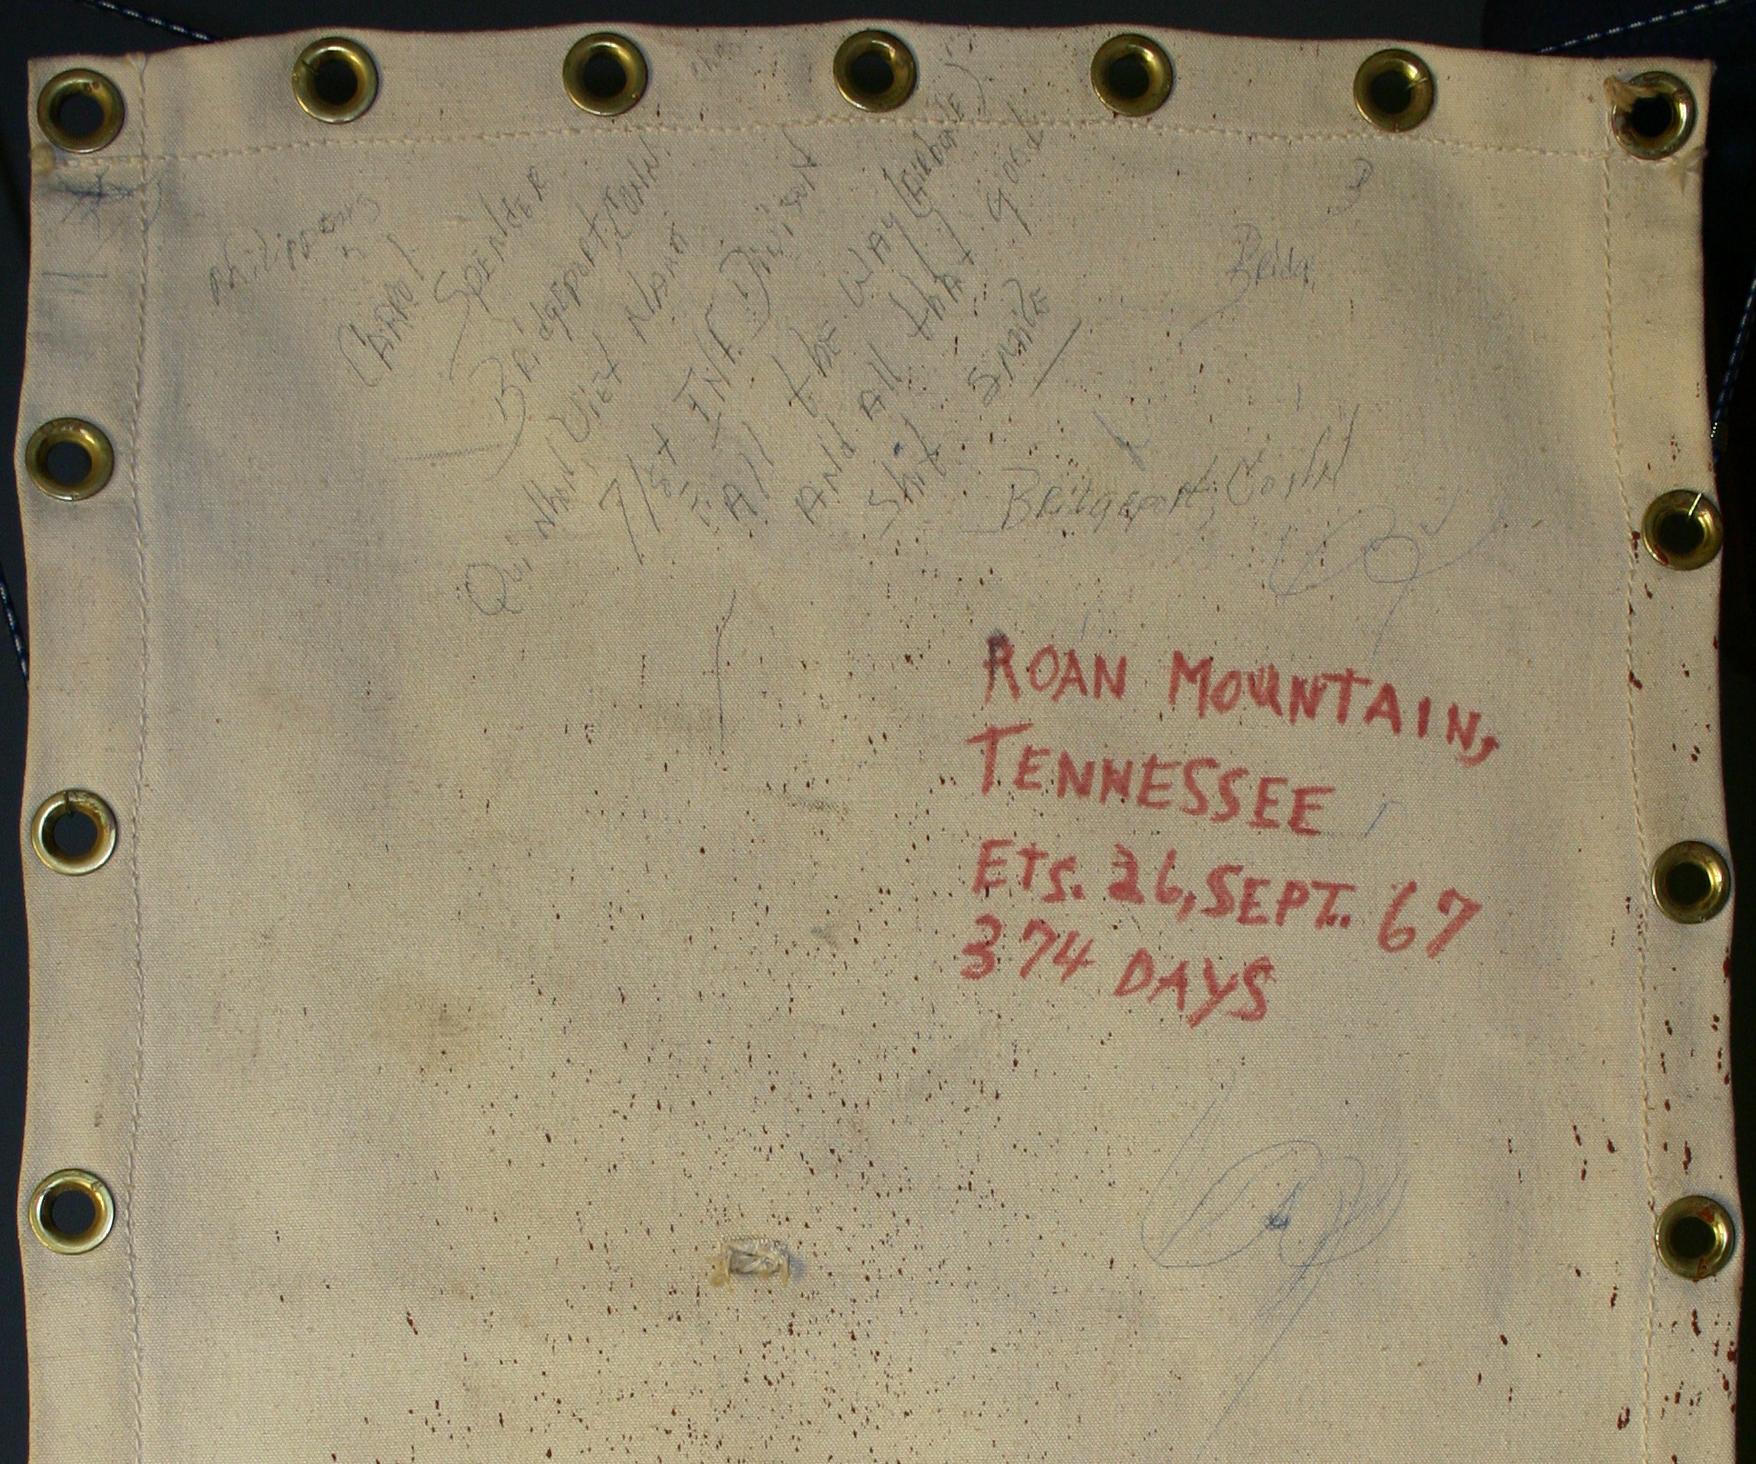 Philippeans
CARROl SPENCER
BRidgEPORt, CONN
Qui Nhon, ViEt NAM
1/81st INF. Divison
All thE WAy (AiRbORNE)
ANd All thAt good
Shit
SmilE
Bridg
BRidgEport, Conn
ROAN MOUNTAIN,
TENNESSEE
Ets. 26, SEPT. 67
374 DAYS